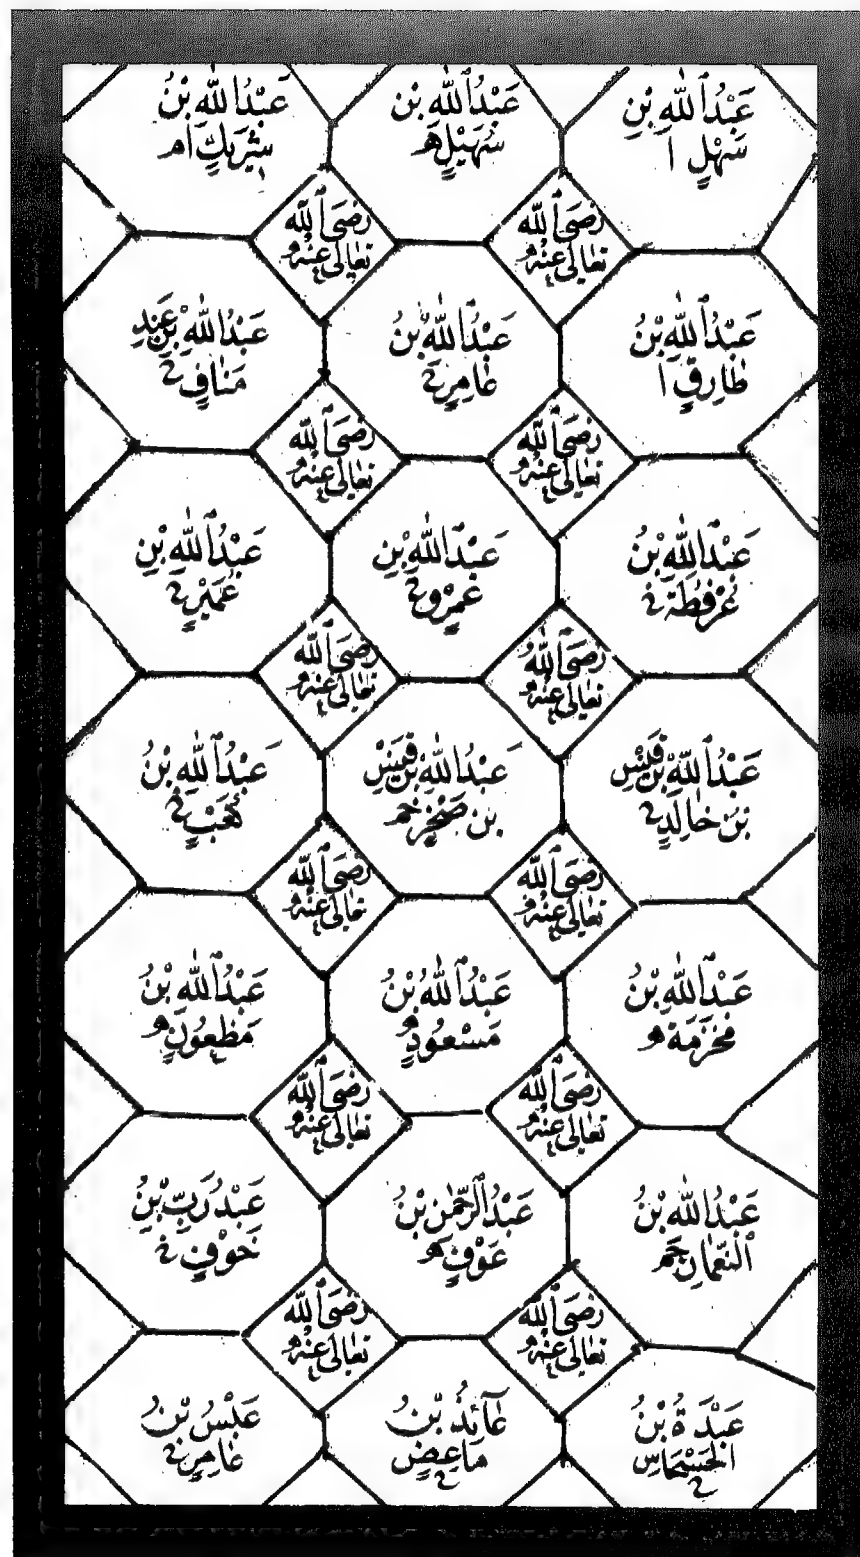 عَبْدُ ٱللّٰهِ بْنِ
سَهْلٍ ا
عَبْدُ ٱللّٰهِ بْن
سُهَيْلٍ ه
عَبْدُ ٱللّٰهِ بْنُ
شَرِيكٍ ام
رَضِىَ ٱللّٰه
تَعَالٰى عَنْهُ و
رَضِىَ ٱللّٰه
تَعَالٰى عَنْهُ و
عَبْدُ ٱللّٰهِ بْنُ
طَارِقٍ ا
عَبْدُ ٱللّٰهِ بْنُ
عَامِرٍ خ
عَبْدُ ٱللّٰهِ بْنِ عَبْدِ
مَنَافٍ خ
رَضِىَ ٱللّٰه
تَعَالٰى عَنْهُ و
رَضِىَ ٱللّٰه
تَعَالٰى عَنْهُ و
عَبْدُ ٱللّٰهِ بْنُ
عُرْفُطَةَ خ
عَبْدُ ٱللّٰهِ بْنِ
عَمْرٍو خ
عَبْدُ ٱللّٰهِ بْنِ
عُمَيْرٍ خ
رَضِىَ ٱللّٰه
تَعَالٰى عَنْهُ و
رَضِىَ ٱللّٰه
تَعَالٰى عَنْهُ و
عَبْدُ ٱللّٰهِ بْن قَيْسِ
بْن خَالِدٍ خ
عَبْدُ ٱللّٰهِ بْن قَيْسِ
بْن صَخْرٍ خم
عَبْدُ ٱللّٰهِ بْنُ
كَعْبٍ خ
رَضِىَ ٱللّٰه
تَعَالٰى عَنْهُ و
رَضِىَ ٱللّٰه
تَعَالٰى عَنْهُ و
عَبْدُ ٱللّٰهِ بْنُ
مَخْرَمَةَ ه
عَبْدُ ٱللّٰهِ بْنُ
مَسْعُودٍ ه
عَبْدُ ٱللّٰهِ بْنُ
مَظْعُونٍ ه
رَضِىَ ٱللّٰه
تَعَالٰى عَنْهُ و
رَضِىَ ٱللّٰه
تَعَالٰى عَنْهُ و
عَبْدُ ٱللّٰهِ بْنُ
ٱلنُّعْمَانِ خم
عَبْدُ ٱلرَّحْمٰنِ بْنُ
عَوْفٍ ه
عَبْدُ رَبِّ بْنُ
حَوْفٍ خ
رَضِىَ ٱللّٰه
تَعَالٰى عَنْهُ و
رَضِىَ ٱللّٰه
تَعَالٰى عَنْهُ و
عَبْدَةُ بْنُ
الْحَسْحَاسِ خ
عَآئِذُ بْنُ
مَاعِضٍ خ
عَبْسُ بْنُ
عَامِرٍ خ